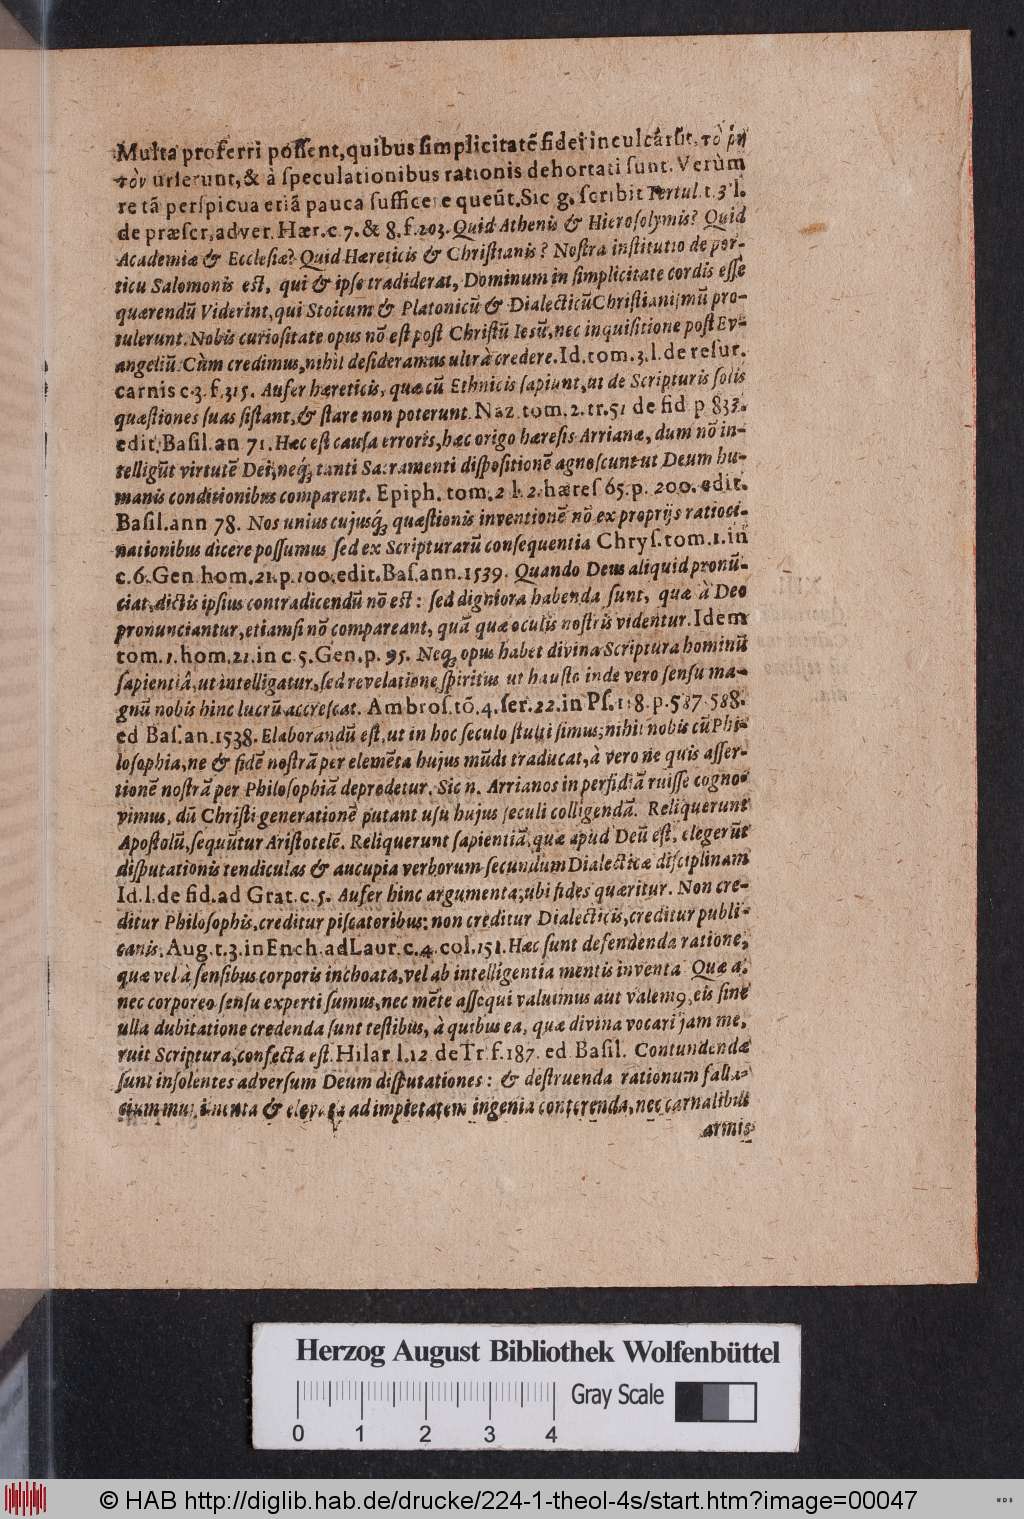 Multa proferri possent, quibus simplicitatē fidei inculcârūt, τὸ ῥη
τὸν urserunt, & à speculationibus rationis dehortati sunt. Verùm
re tā perspicua etiā pauca sufficere queūt. Sic g. scribit Tertul. t. 3 l.
de præscr. adver. Hær. c. 7. & 8. f. 203. Quid Athenis & Hierosolymis? Quid
Academiæ & Ecclesiæ? Quid Hæreticis & Christianis? Nostra institutio de por-
ticu Salomonis est, qui & ipse tradiderat, Dominum in simplicitate cordis esse
quærendū Viderint, qui Stoicum & Platonicū & Dialecticū Christianismū pro-
tulerunt. Nobis curiositate opus nō est post Christū Iesū, nec inquisitione post Ev-
angeliū. Cùm credimus, nihil desideramus ultrà credere. Id. tom. 3. l. de resur.
carnis c. 3. f. 315. Aufer hæreticis, quæ cū Ethnicis sapiunt, ut de Scripturis solis
quæstiones suas sistant, & stare non poterunt. Naz. tom. 2. tr. 51 de fid p 833.
edit. Basil. an 71. Hæc est causa erroris, hæc origo hæresis Arrianæ, dum nō in-
telligūt virtutē Dei, neqꝫ tanti Sacramenti dispositionē agnoscunt ut Deum hu-
manis conditionibus comparent. Epiph. tom. 2 l. 2. hæres 65. p. 200. edit.
Basil. ann 78. Nos unius cujusqꝫ quæstionis inventionē nō ex proprijs ratioci-
nationibus dicere possumus sed ex Scripturarū consequentia Chrys. tom. 1. in
c. 6. Gen. hom. 21. p. 100. edit. Bas. ann. 1539. Quando Deus aliquid pronū-
ciat, dictis ipsius contradicendū nō est: sed digniora habenda sunt, quæ à Deo
pronunciantur, etiamsi nō compareant, quā quæ oculis nostris videntur. Idem
tom. 1. hom. 21. in c. 5. Gen. p. 95. Neqꝫ opus habet divina Scriptura hominū
sapientiâ, ut intelligatur, sed revelatione spiritus ut hausto inde vero sensu ma-
gnū nobis hinc lucrū accrescat. Ambros. tō. 4. ser. 22. in Ps. 118. p. 587. 588.
ed Bas. an. 1538. Elaborandū est, ut in hoc seculo stulti simus, nihil nobis cū Phi-
losophia, ne & fidē nostrā per elemēta hujus mūdi traducat, à vero ne quis asser-
tionē nostrā per Philosophiā depredetur. Sic n. Arrianos in perfidiā ruisse cogno-
vimus, dū Christi generationē putant usu hujus seculi colligendā. Reliquerunt
Apostolū, sequūtur Aristotelē. Reliquerunt sapientiā, quæ apud Deū est, elegerūt
disputationis tendiculas & aucupia verborum secundum Dialecticæ disciplinam
Id. l. de fid. ad Grat. c. 5. Aufer hinc argumenta, ubi fides quæritur. Non cre-
ditur Philosophis, creditur piscatoribus: non creditur Dialecticis, creditur publi-
canis. Aug. t. 3. in Ench. ad Laur. c. 4. col. 151. Hæc sunt defendenda ratione,
quæ vel à sensibus corporis inchoata, vel ab intelligentia mentis inventa Quæ a.
nec corporeo sensu experti sumus, nec mēte assequi valuimus aut valemꝰ, eis sine
ulla dubitatione credenda sunt testibus, à quibus ea, quæ divina vocari jam me,
ruit Scriptura, confecta est. Hilar l. 12 de Tr f. 187. ed Basil. Contundendæ
sunt insolentes adversum Deum disputationes: & destruenda rationum falla-
cium munimenta & elevata ad impietatem ingenia conterenda, nec carnalibus
armis
Herzog August Bibliothek Wolfenbüttel
Gray Scale
0 1 2 3 4
© HAB http://diglib.hab.de/drucke/224-1-theol-4s/start.htm?image=00047